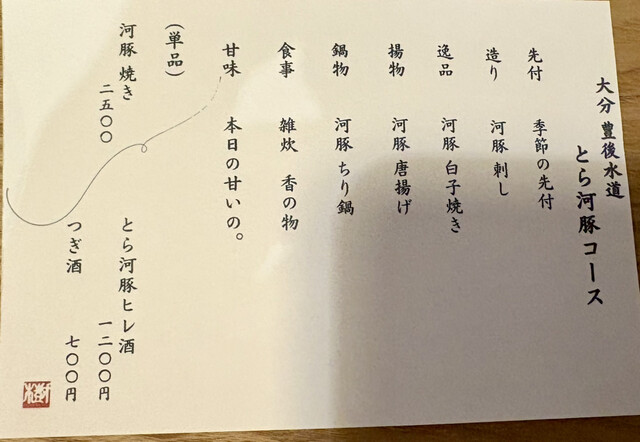 大分 豊後水道
とら河豚コース
先付 季節の先付
造り 河豚 刺し
逸品 河豚 白子焼き
揚物 河豚 唐揚げ
鍋物 河豚 ちり鍋
食事 雑炊 香の物
甘味 本日の甘いの。
(単品)
河豚 焼き 二五〇〇
とら河豚ヒレ酒 一二〇〇円
つぎ酒 七〇〇円